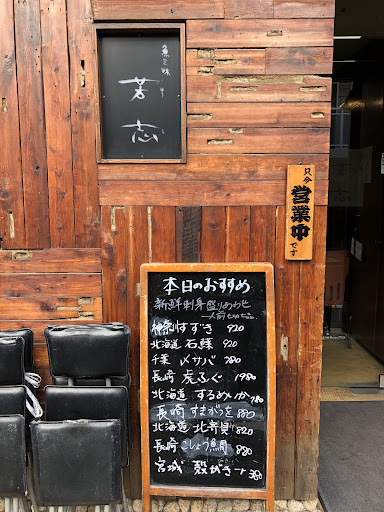 魚三昧
若志
只今
営業中
です
本日のおすすめ
新鮮刺身盛りあわせ
一人前
神奈川すずき 920
北海道 石鰈 920
千葉 〆サバ 780
長崎 虎ふぐ 1980
北海道 するめいか 780
長崎 すまがつを 880
北海道 北寄貝 820
長崎 こしょう鯛 880
宮城 殻がき 一ヶ 380